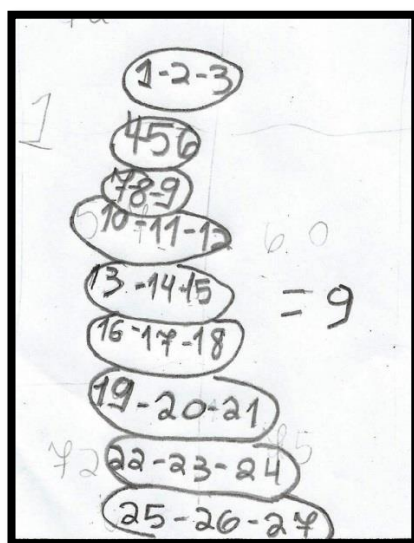 1
1-2-3
456
78-9
10-11-12
13-14-15
= 9
16-17-18
19-20-21
22-23-24
25-26-27